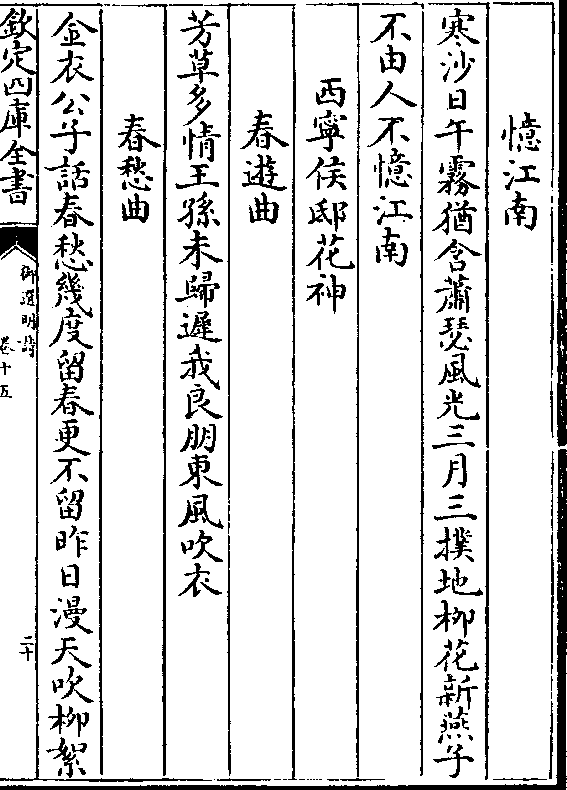 憶江南
寒沙日午霧猶含蕭瑟風光三月三撲地柳花新燕子
不由人不憶江南
西寧侯邸花神
春遊曲
芳草多情王孫未歸遲我良朋東風吹衣
春愁曲
金衣公子話春愁幾度留春更不留昨日漫天吹柳絮
欽定四庫全書
御選明詩
卷十五
二十